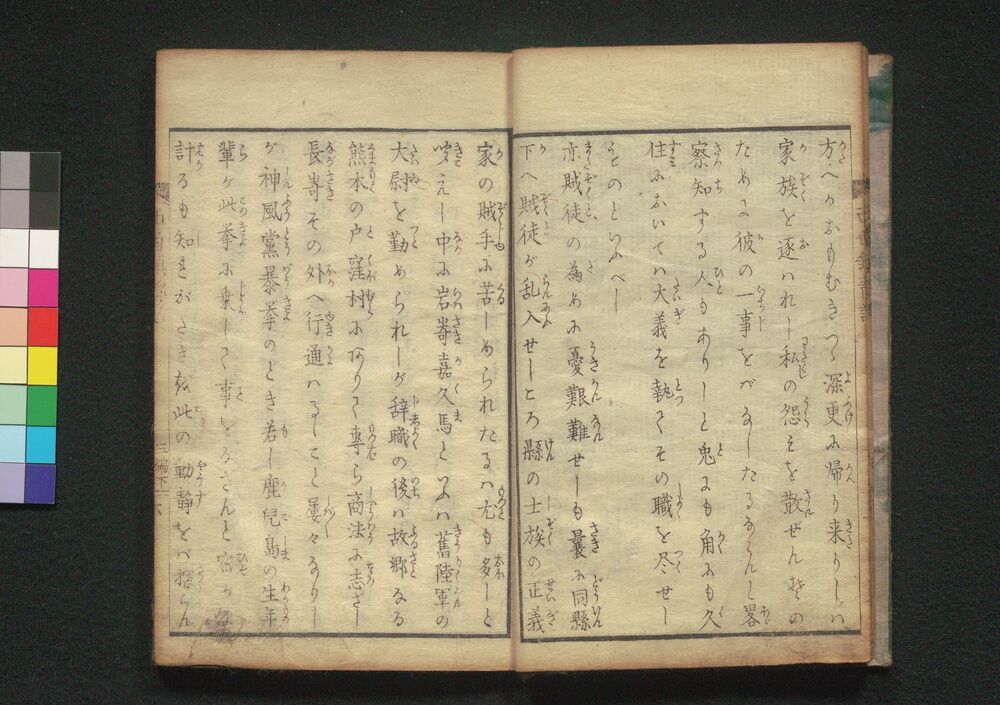 方へかおもむきつゝ深更に帰り来りしハ
家族を逐ハれし私の怨ミを散ぜんその
ために彼の一事をバなしたるならんと畧
察知する人もありしと兎にも角にも久
住においてハ大義を執てその職を尽せし
ものといふべし
亦賊徒の為めに憂艱難せしも曩に同縣
下へ賊徒が乱入せしところ縣の士族の正義
家の賊手に苦しめられたるハ尤も多しと
聞えし中に岩嵜嘉久馬といふハ舊陸軍の
大尉を勤められしが辞職の後ハ故郷なる
熊本の戸窪村にありて専ら商法に志ざし
長嵜その外へ行通ハるゝこと屡々なりし
が神風黨暴挙のとき若し鹿児島の生年
輩が此挙に乗して事をなさんと密かに
計るも知れがたきを此の動静をバ探らん
三編下 六